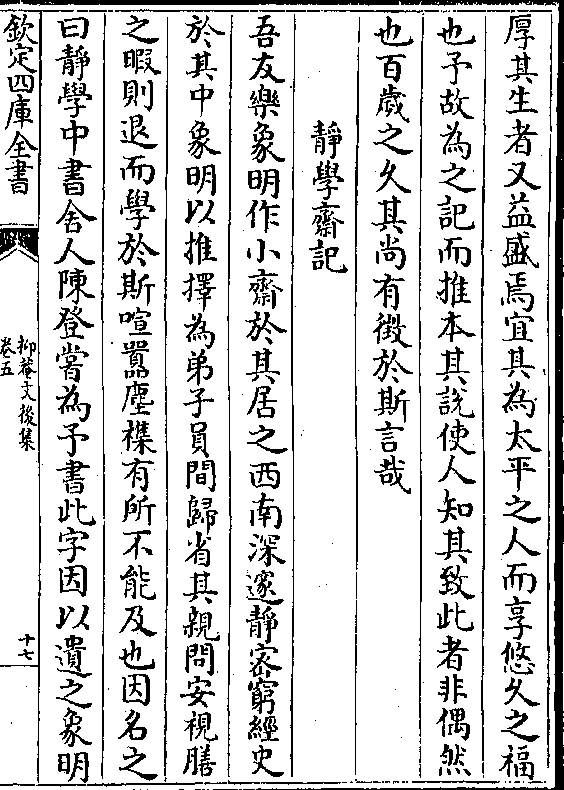 厚其生者又益盛焉宜其為太平之人而享悠久之福
也予故為之記而推本其說使人知其致此者非偶然
也百歲之久其尚有徴於斯言哉
静學齋記
吾友樂象明作小齋於其居之西南深邃静宻窮經史
於其中象明以推擇為弟子員間歸省其親問安視膳
之暇則退而學於斯喧嚚塵襍有所不能及也因名之
曰静學中書舍人陳登嘗為予書此字因以遺之象明
欽定四庫全書
抑菴文後集
卷五
十七